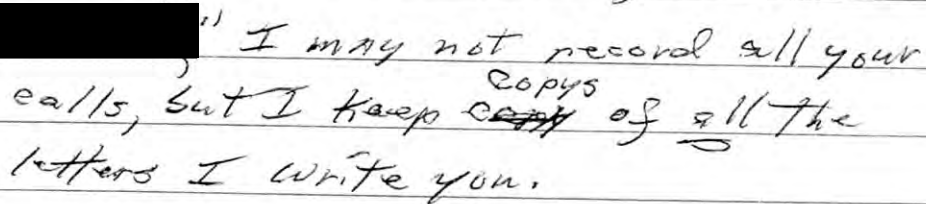 " I may not record all your
calls, but I keep copys of all the
letters I write you.